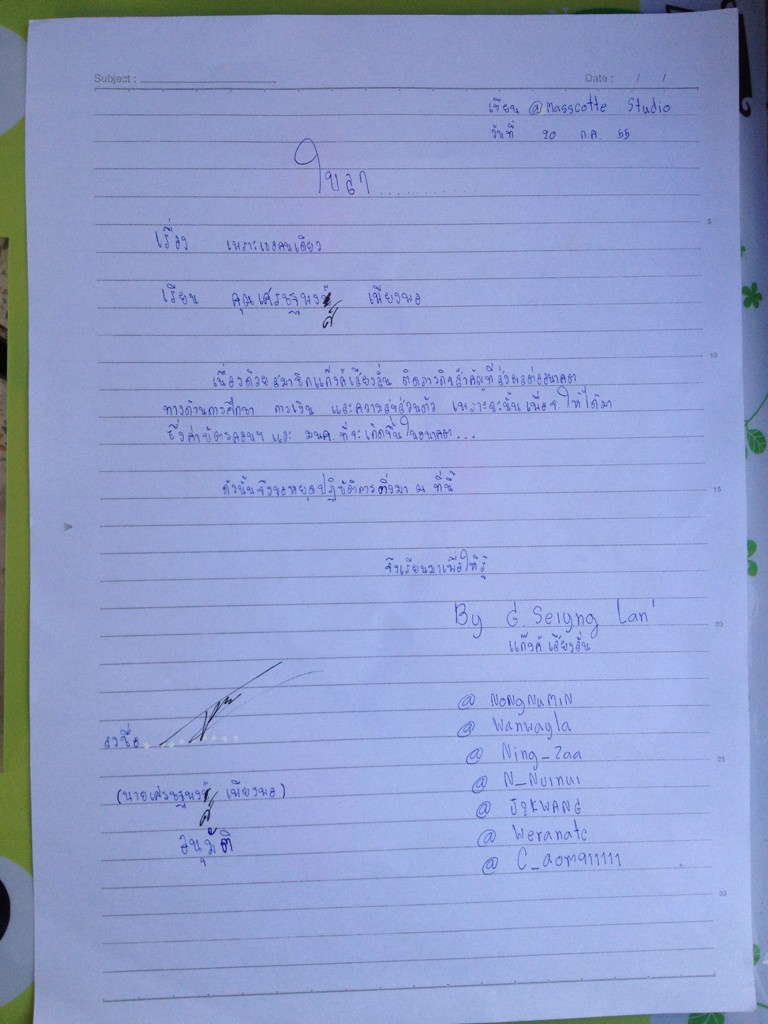 Subject :
Date : / /
เรียน @Masscotte Studio
วันที่ 20 ก.ค. 55
ใบลา..........
5
เรื่อง เพราะเธอคนเดียว
เรียน คุณเศรษฐพงศ์ เพียงพอ
10
เนื่องด้วยสมาชิกแก๊งค์เสียงลั่น ติดภารกิจสำคัญที่ส่งผลต่ออนาคต
ทางด้านการศึกษา การเงิน และความสุขส่วนตัว เพราะฉะนั้นเพื่อจะให้ได้มา
ซึ่งค่าบัตรคอนฯ และ มนค. ที่จะเกิดขึ้นในอนาคต...
15
ดังนั้นจึงขอหยุดปฏิบัติการติ่งมา ณ ที่นี้
จึงเรียนมาเพื่อให้รู้
By G. Seiyng Lan'
20
แก๊งค์เสียงลั่น
@ NONGNUMIN
@ Wanwayla
@ Ning_Zaa
25
@ N_Nuinui
@ JikWANG
@ Weranatc
@ C_aom911111
ลงชื่อ
(นายเศรษฐพงศ์ เพียงพอ)
อนุมัติ
30